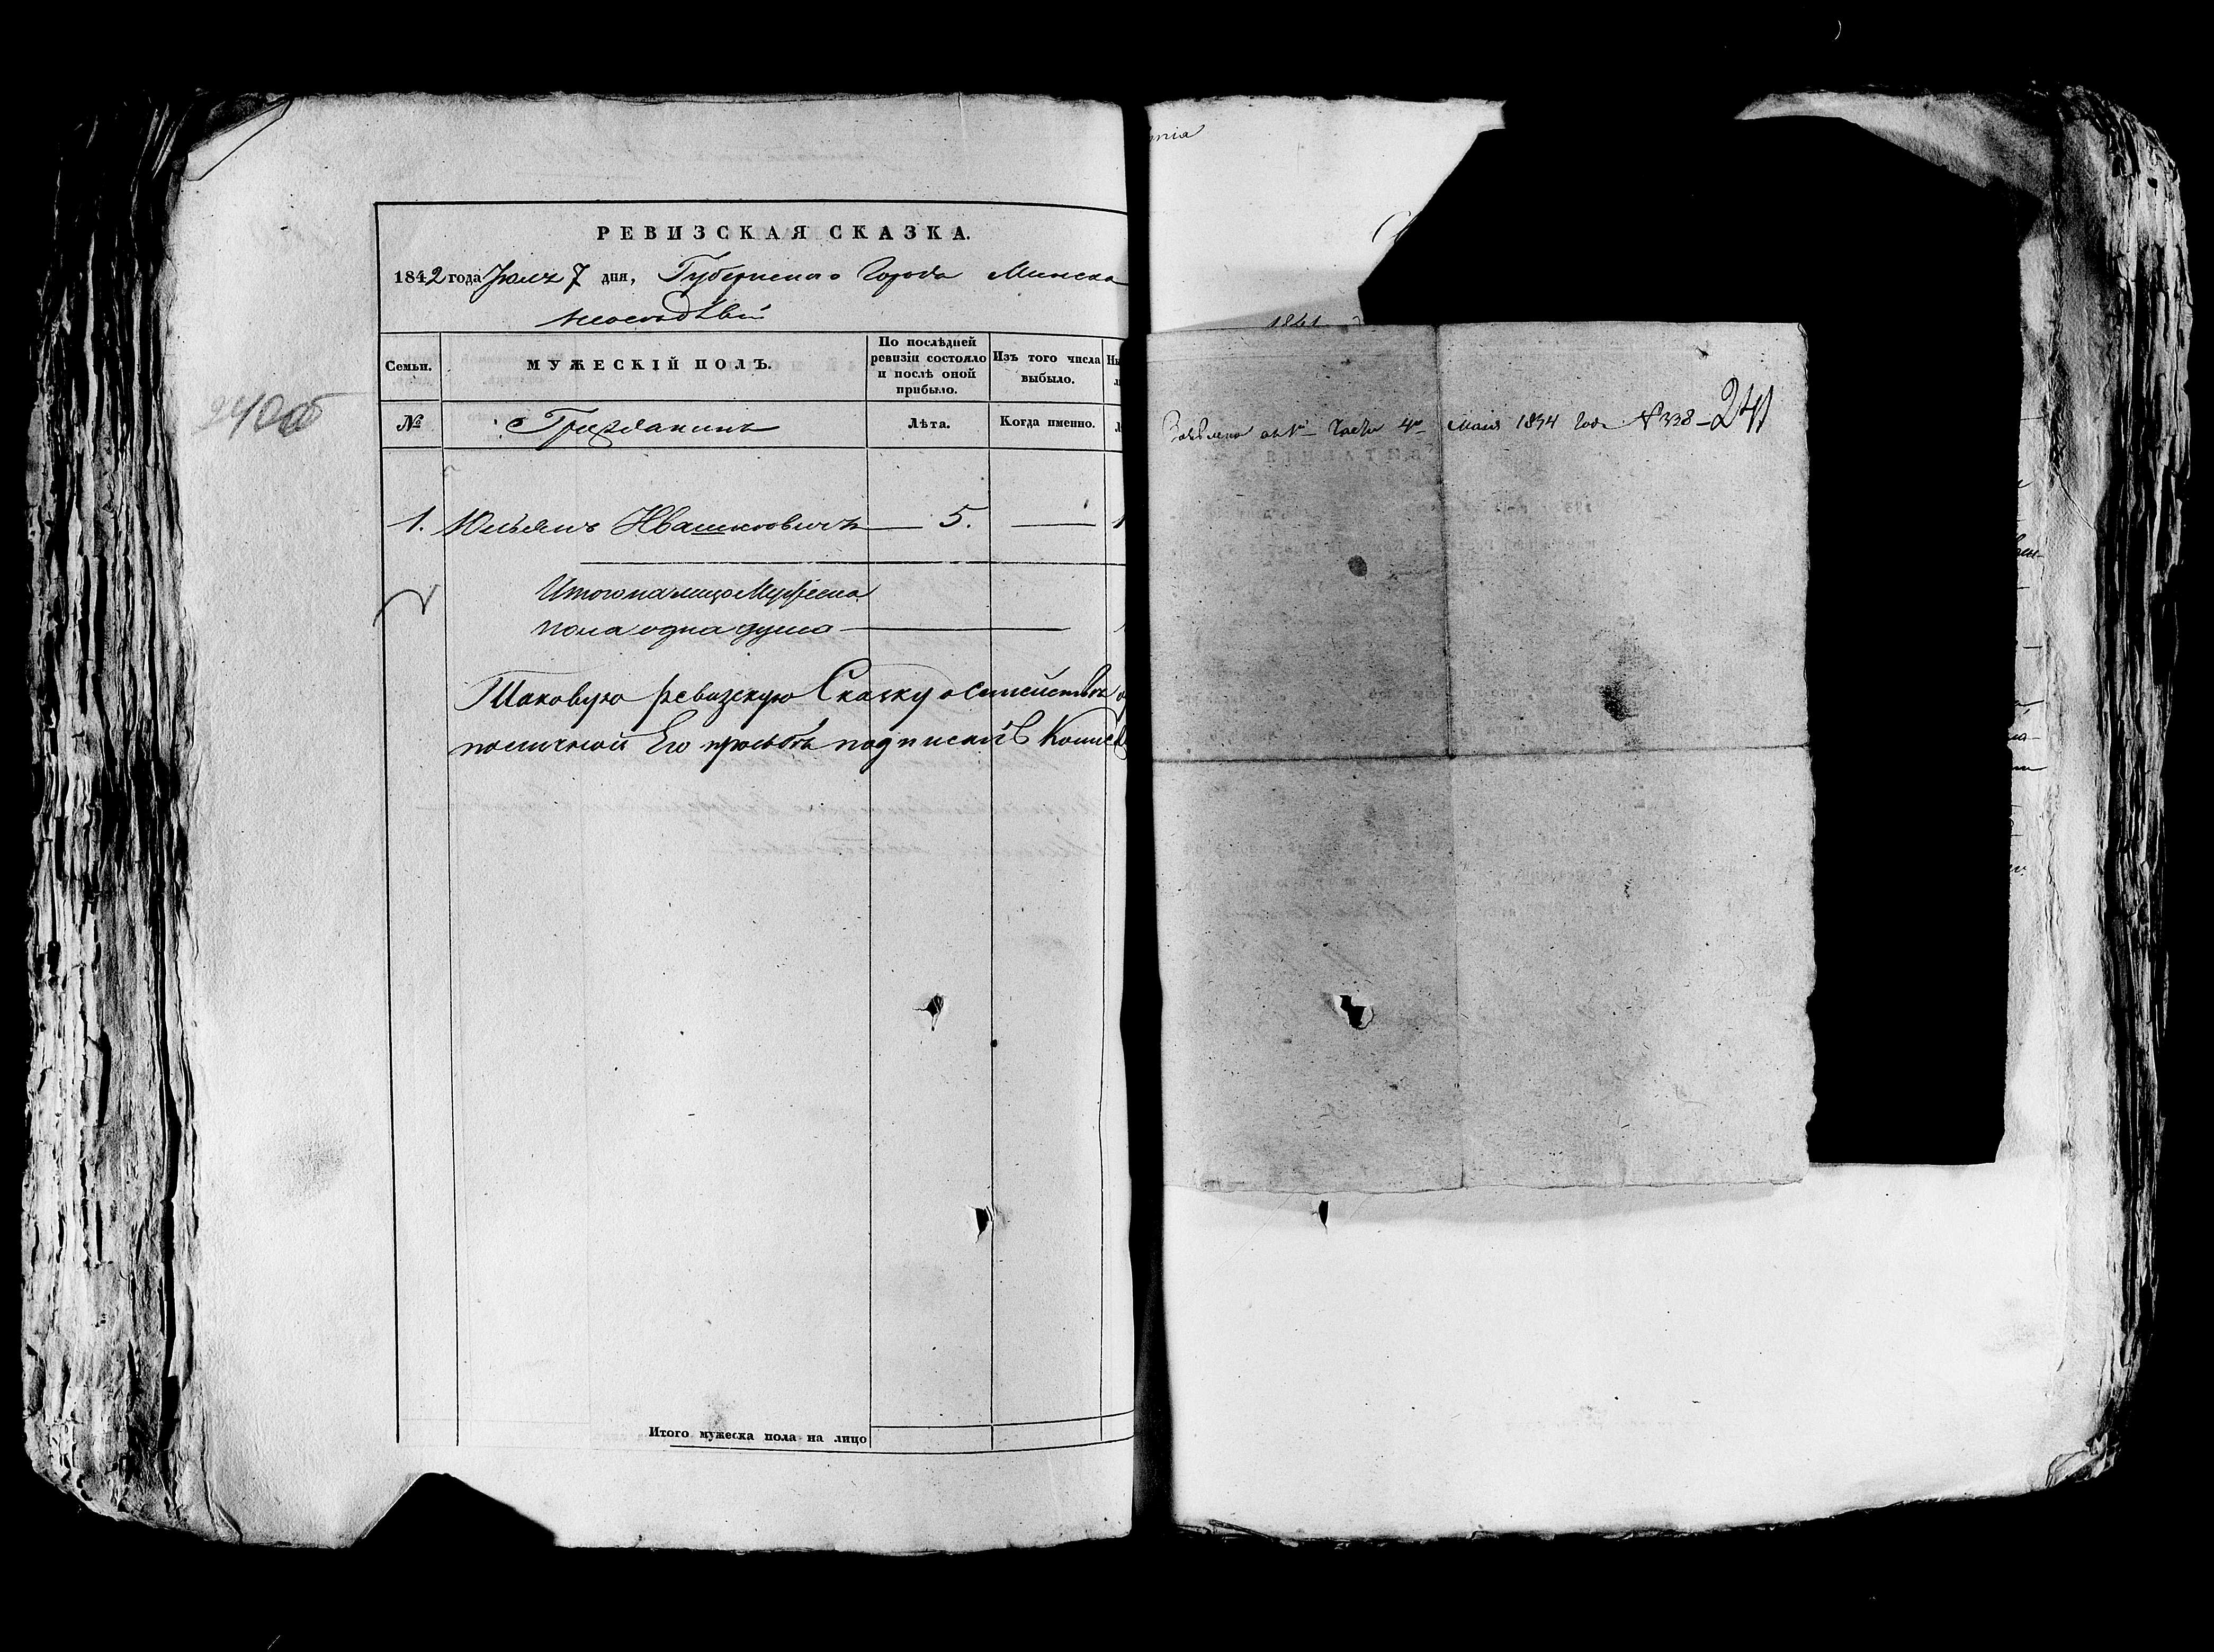 РЕВИЗСКАЯ СКАЗКА.
1842 года Июля 7 дня, Губернскаго Города Минска
Семьи.
МУЖЕСКІЙ ПОЛЪ.
По послѣдней ревизіи состояло и послѣ оной прибыло.
Изъ того числа выбыло.
№
Гражданинъ
Лѣта.
Когда именно.
240об
1. Юльянъ Ивашкевичъ — 5. —
Итого на лицо Мужеска
пола одна душа —
Таковую ревизскую Сказку о Семействѣ
по личной Его прозьбѣ подписалъ
Итого мужеска пола на лицо
1841
Части 4го Маія 1834 Года № 328 — 241